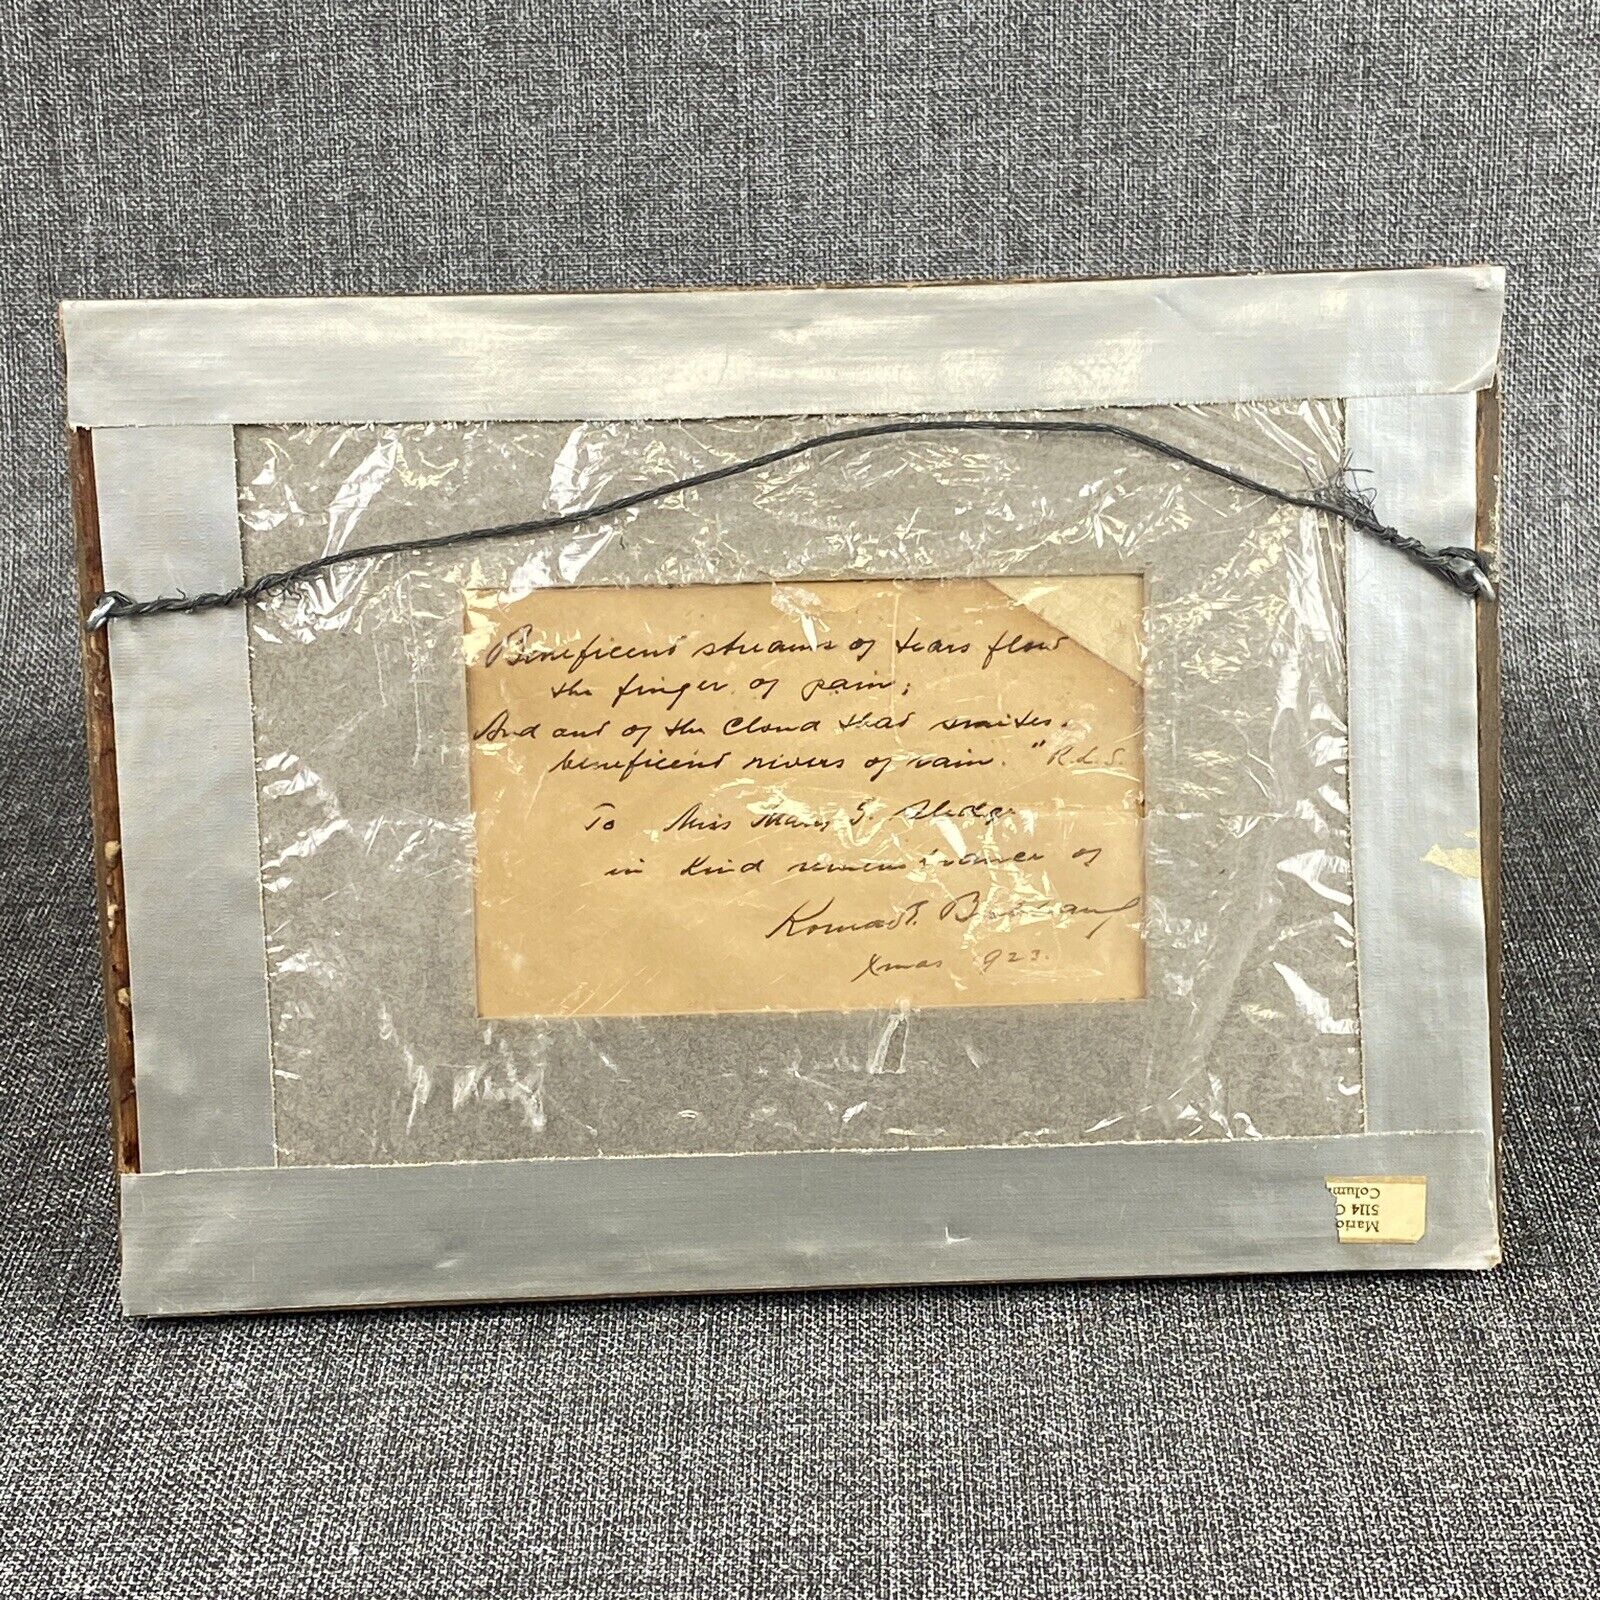 Beneficent streams of tears flow
the finger of pain;
And out of the cloud that smites,
beneficent rivers of rain." R.L.S.
To Miss Mary S.
in kind remembrance of
Xmas 1923.
Mario
5114 C
Colum